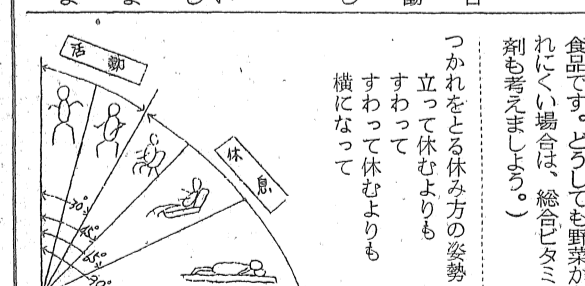 食品です。どうしても野菜が
れにくい場合は、総合ビタミ
剤も考えましよう。)
つかれをとる休み方の姿勢
立って休むよりも
すわって
すわって休むよりも
横になって
休息
活動
30°
45°
65°